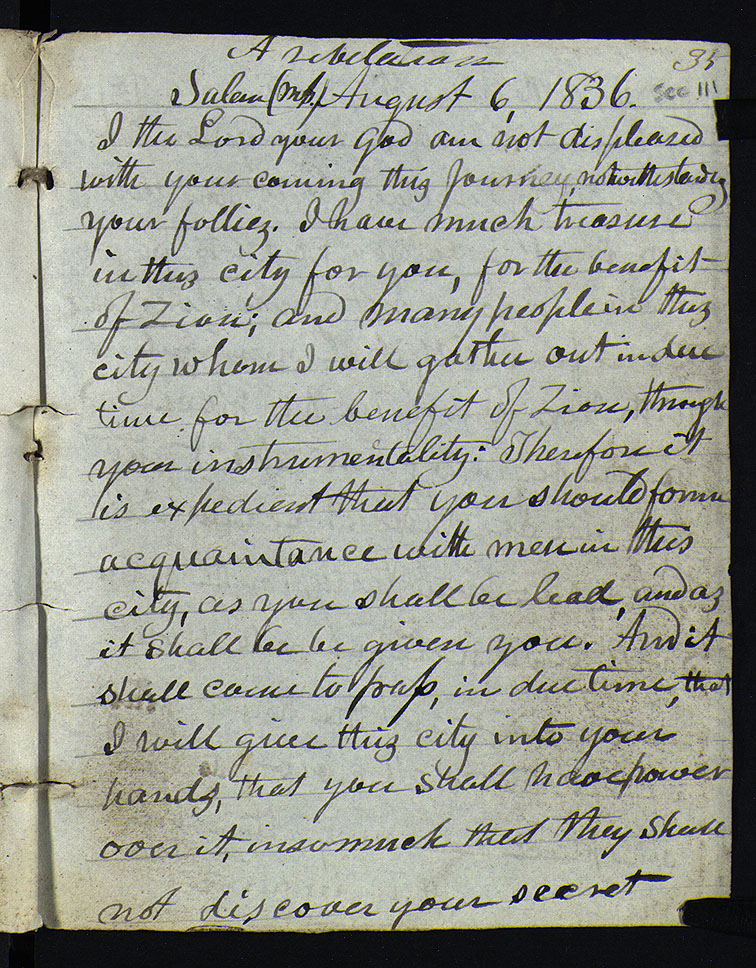 A revelation
35
Salem (Ms) August 6, 1836.
See 111
I the Lord your God am not displeased
with your coming this Journey, notwithstanding
your follies. I have much treasure
in this city for you, for the benefit
of Zion; and many people in this
city whom I will gather out in due
time for the benefit of Zion, through
your instrumentality: Therefore it
is expedient that you should form
acquaintance with men in this
city, as you shall be lead, and as
it shall be be given you. And it
shall come to pass, in due time, that
I will give this city into your
hands, that you shall have power
over it, insomuch that they shall
not discover your secret